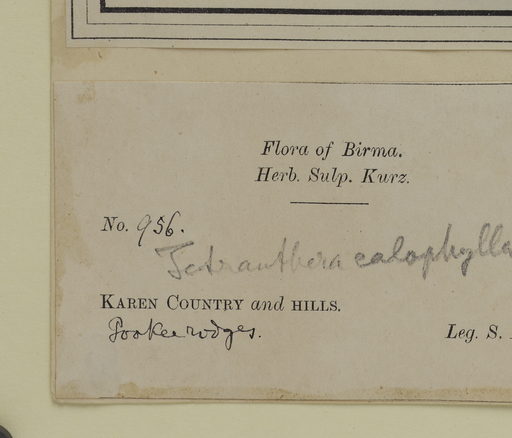 Flora of Birma.
Herb. Sulp. Kurz.
No. 956.
Tetranthera calophylla
KAREN COUNTRY and HILLS.
Leg. S.